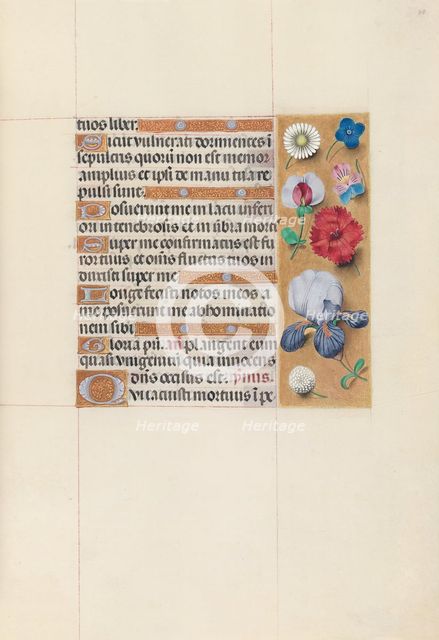 tuos liber.
Sicut vulnerati dormientes i
sepulcris quorū non est memor
amplius et ipsi de manu tua re
pulsi sunt.
Posuerunt me in lacu inferi
ori in tenebrosis et in ūbra mort
Super me confirmatus est fu
ror tuus et oīnis fluctus tuos in
duxisti super me.
Longe fecisti notos meos a
me posuerunt me abhominatio
nem sibi.
Gloria pri. añ Plangent eum
quasi unigenitū quia innocens
dn̄s occisus est. p̄mis.
O vita cursti mortuus i pe
Heritage
Heritage
Heritage
Heritage
Heritage
Heritage